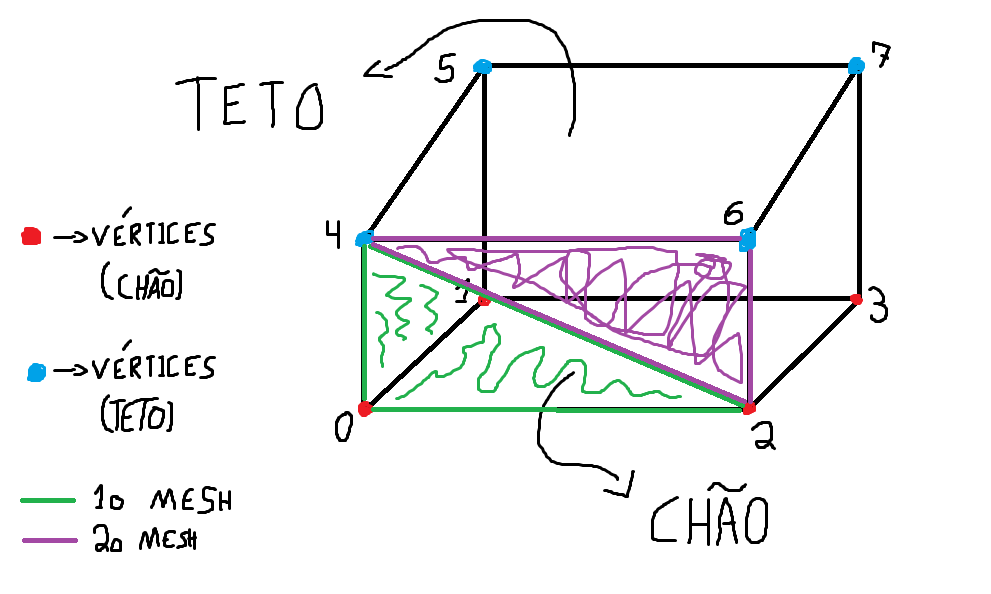 TETO
5
7
4
6
1
3
0
2
→VÉRTICES
(CHÃO)
→VÉRTICES
(TETO)
1o MESH
2o MESH
CHÃO